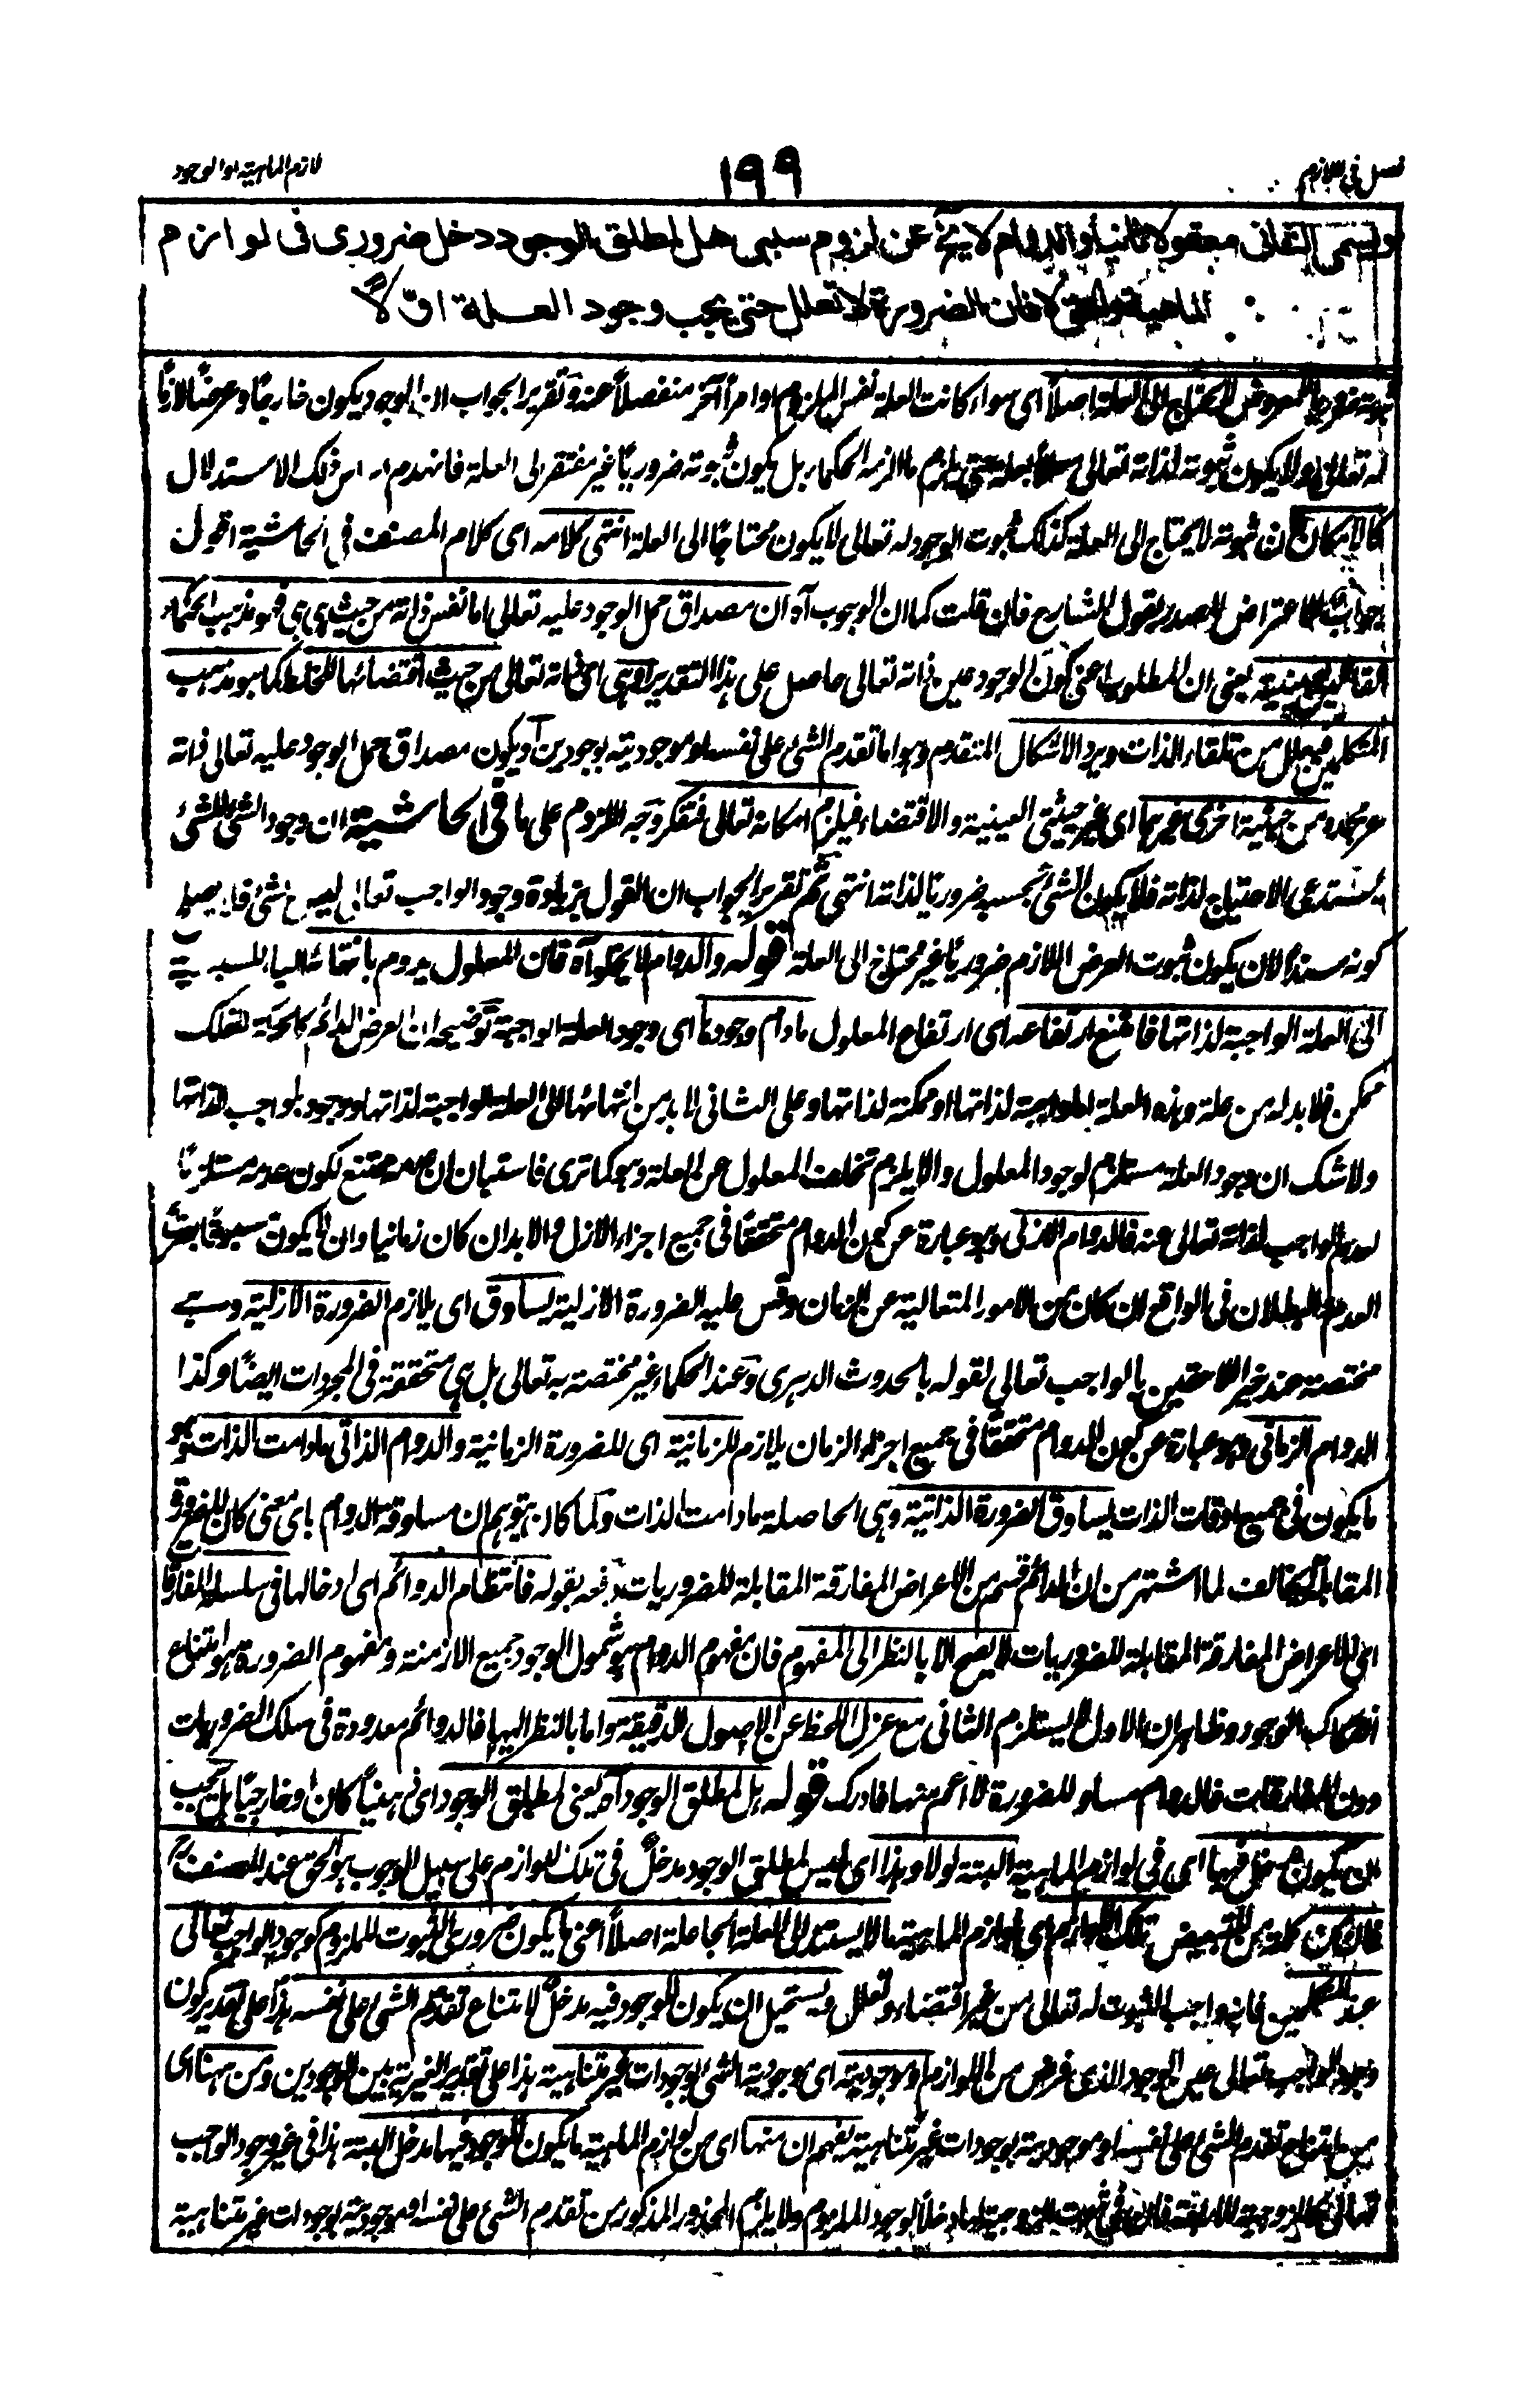 فصل في اللازم
١٩٩
لازم الماهية او الوجود
ويسمى الثاني معقولا ثانيا والدوام لا يخ عن لزوم سببي هل لمطلق الوجود دخل ضروري في لوازم
الماهية والحق لا فان الضرورة لا تعلل حتى يجب وجود العلة اولا
اصلا اى سواء كانت العلة نفس الملزوم او امرا آخر منفصلا عنه وتقرير الجواب ان الوجود يكون خارجا وعرضا لازما
له تعالى ولا يكون ثبوته لذاته تعالى بعلة حتى يلزم ما الزمه الحكماء بل يكون ثبوته ضروريا غير مفتقر الى العلة فانهدم اساس ذلك الاستدلال
كالامكان ان ثبوته لا يحتاج الى العلة كذلك ثبوت الوجود له تعالى لا يكون محتاجا الى العلة انتهى كلامه اى كلام المصنف في الحاشية اقول
الاعتراض المصدر بقول الشارح فان قلت كما ان الوجوب آه ان مصداق حمل الوجود عليه تعالى اما نفس ذاته من حيث هى هى فهو مذهب الحكماء
القائلين بعينيته يعنى ان المطلوب اعنى كون الوجود عين ذاته تعالى حاصل على هذا التقدير او هى اى ذاته تعالى من حيث اقتضائها للخلط كما هو مذهب
المتكلمين من تلقاء الذات ويرد الاشكال المتقدم وهو اما تقدم الشئ على نفسه او موجوديته بوجودين او يكون مصداق حمل الوجود عليه تعالى ذاته
من حيثية اخرى غيرهما اى غير حيثيتى العينية والاقتضاء فيلزم امكانه تعالى فتفكر وجه اللزوم على ما في الحاشية ان وجود الشئ للشئ
يستدعى الاحتياج لذاته فلا يكون الشئ بحسبه ضروريا لذاته انتهى ثم تقرير الجواب ان القول بزيادة وجود الواجب تعالى ليس بشئ فلا يصلح
كونه سندا لان يكون ثبوت العرض اللازم ضروريا غير محتاج الى العلة قوله والدوام لا يخلو آه فان المعلول يدوم بانتهائه
الى العلة الواجبة لذاتها فامتنع ارتفاعه اى ارتفاع المعلول مادام وجودها اى وجود العلة الواجبة توضيحه ان العرض الدائم كالحركة للفلك
ممكن فلا بد له من علة وهذه العلة اما واجبة لذاتها او ممكنة لذاتها وعلى الثانى لا بد من انتهائها الى العلة الواجبة لذاتها
ولا شك ان وجود العلة مستلزم لوجود المعلول والا يلزم تخلف المعلول عن العلة وهو كما ترى فاستبان ان عدمه ممتنع لكون عدمه مستلزما
لعدم الواجب لذاته تعالى عنه فالدوام الازلى وهو عبارة عن كون الدوام متحققا في جميع اجزاء الازل والابد ان كان زمانيا وان لا يكون مسبوقا
العدم والبطلان في الواقع ان كان من الامور المتعالية عن الزمان وقس عليه الضرورة الازلية يساوق اى يلازم الضرورة الازلية وهى
مختصة عند خير اللاحقين بالواجب تعالى لقوله بالحدوث الدهرى وعند الحكماء غير مختصة به تعالى بل هى متحققة في المجردات ايضا وكذا
الدوام الزمانى وهو عبارة عن كون الدوام متحققا في جميع اجزاء الزمان يلازم للزمانية اى للضرورة الزمانية والدوام الذاتى مادامت الذات وهو
ما يكون في جميع اوقات الذات يساوق الضرورة الذاتية وهى الحاصلة مادامت الذات ولما كان يتوهم ان مساوقة الدوام باى معنى كان للضرورة
المقابلة يخالف لما اشتهر من ان الدائم قسم من الاعراض المفارقة المقابلة للضروريات دفعه بقوله فانتظام الدوائم اى ادخالها في سلسلة المفارقات
اى الاعراض المفارقة المقابلة للضروريات لا يصح الا بالنظر الى المفهوم فان مفهوم الدوام هو شمول الوجود جميع الازمنة ومفهوم الضرورة هو امتناع
انفكاك الوجود وظاهر ان الاول لا يستلزم الثانى مع عزل اللحظ عن الاصول الدقيقة واما بالنظر اليها فالدوائم معدودة في سلك الضروريات
دون المفارقات فالدوام مساو للضرورة لا اعم منها فادرك قوله هل لمطلق الوجود آه يعنى لمطلق الوجود اى ذهنيا كان او خارجيا بل يجب
ان يكون فيها اى في لوازم الماهية البتة او لا وهذا اى ليس لمطلق الوجود مدخل في تلك اللوازم على سبيل الوجوب هو الحق عند المصنف
كلمة من للتبعيض تلك اللوازم اى لوازم الماهية ما لا يستند الى العلة الجاعلة اصلا اعنى ما يكون ضرورى الثبوت للملزوم كوجود الواجب تعالى
عند المتكلمين فانه واجب الثبوت له تعالى من غير اقتضاء وتعلل ويستحيل ان يكون للوجود فيه مدخل لامتناع تقدم الشئ على نفسه هذا على تقدير كون
وجود الواجب تعالى عين الوجود الذى فرض من اللوازم او موجودية اى موجودية الشئ بوجودات غير متناهية هذا على تقدير الغيرية بين الوجودين ومن ههنا اى
من امتناع تقدم الشئ على نفسه او موجوديته بوجودات غير متناهية يفهم ان منها اى من لوازم الماهية ما يكون للوجود فيها مدخل البتة هذا في غير وجود الواجب
تعالى كالزوجية للاربعة ولا يلزم المحذور المذكور من تقدم الشئ على نفسه او موجوديته بوجودات غير متناهية